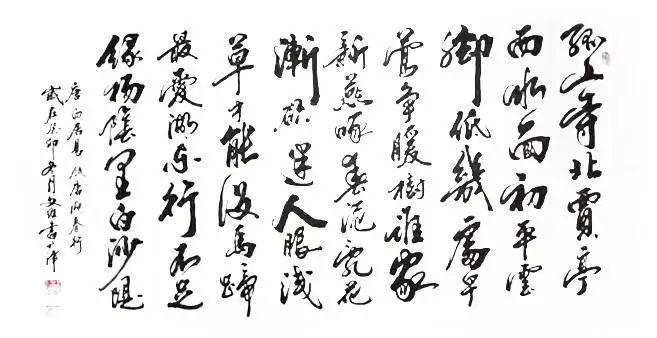 孤山寺北賈亭
西水面初平雲
腳低幾處早
鶯爭暖樹誰家
新燕啄春泥亂花
漸欲迷人眼淺
草才能沒馬蹄
最愛湖东行不足
綠楊陰里白沙堤
唐白居易钱唐湖春行
歲在癸卯月書